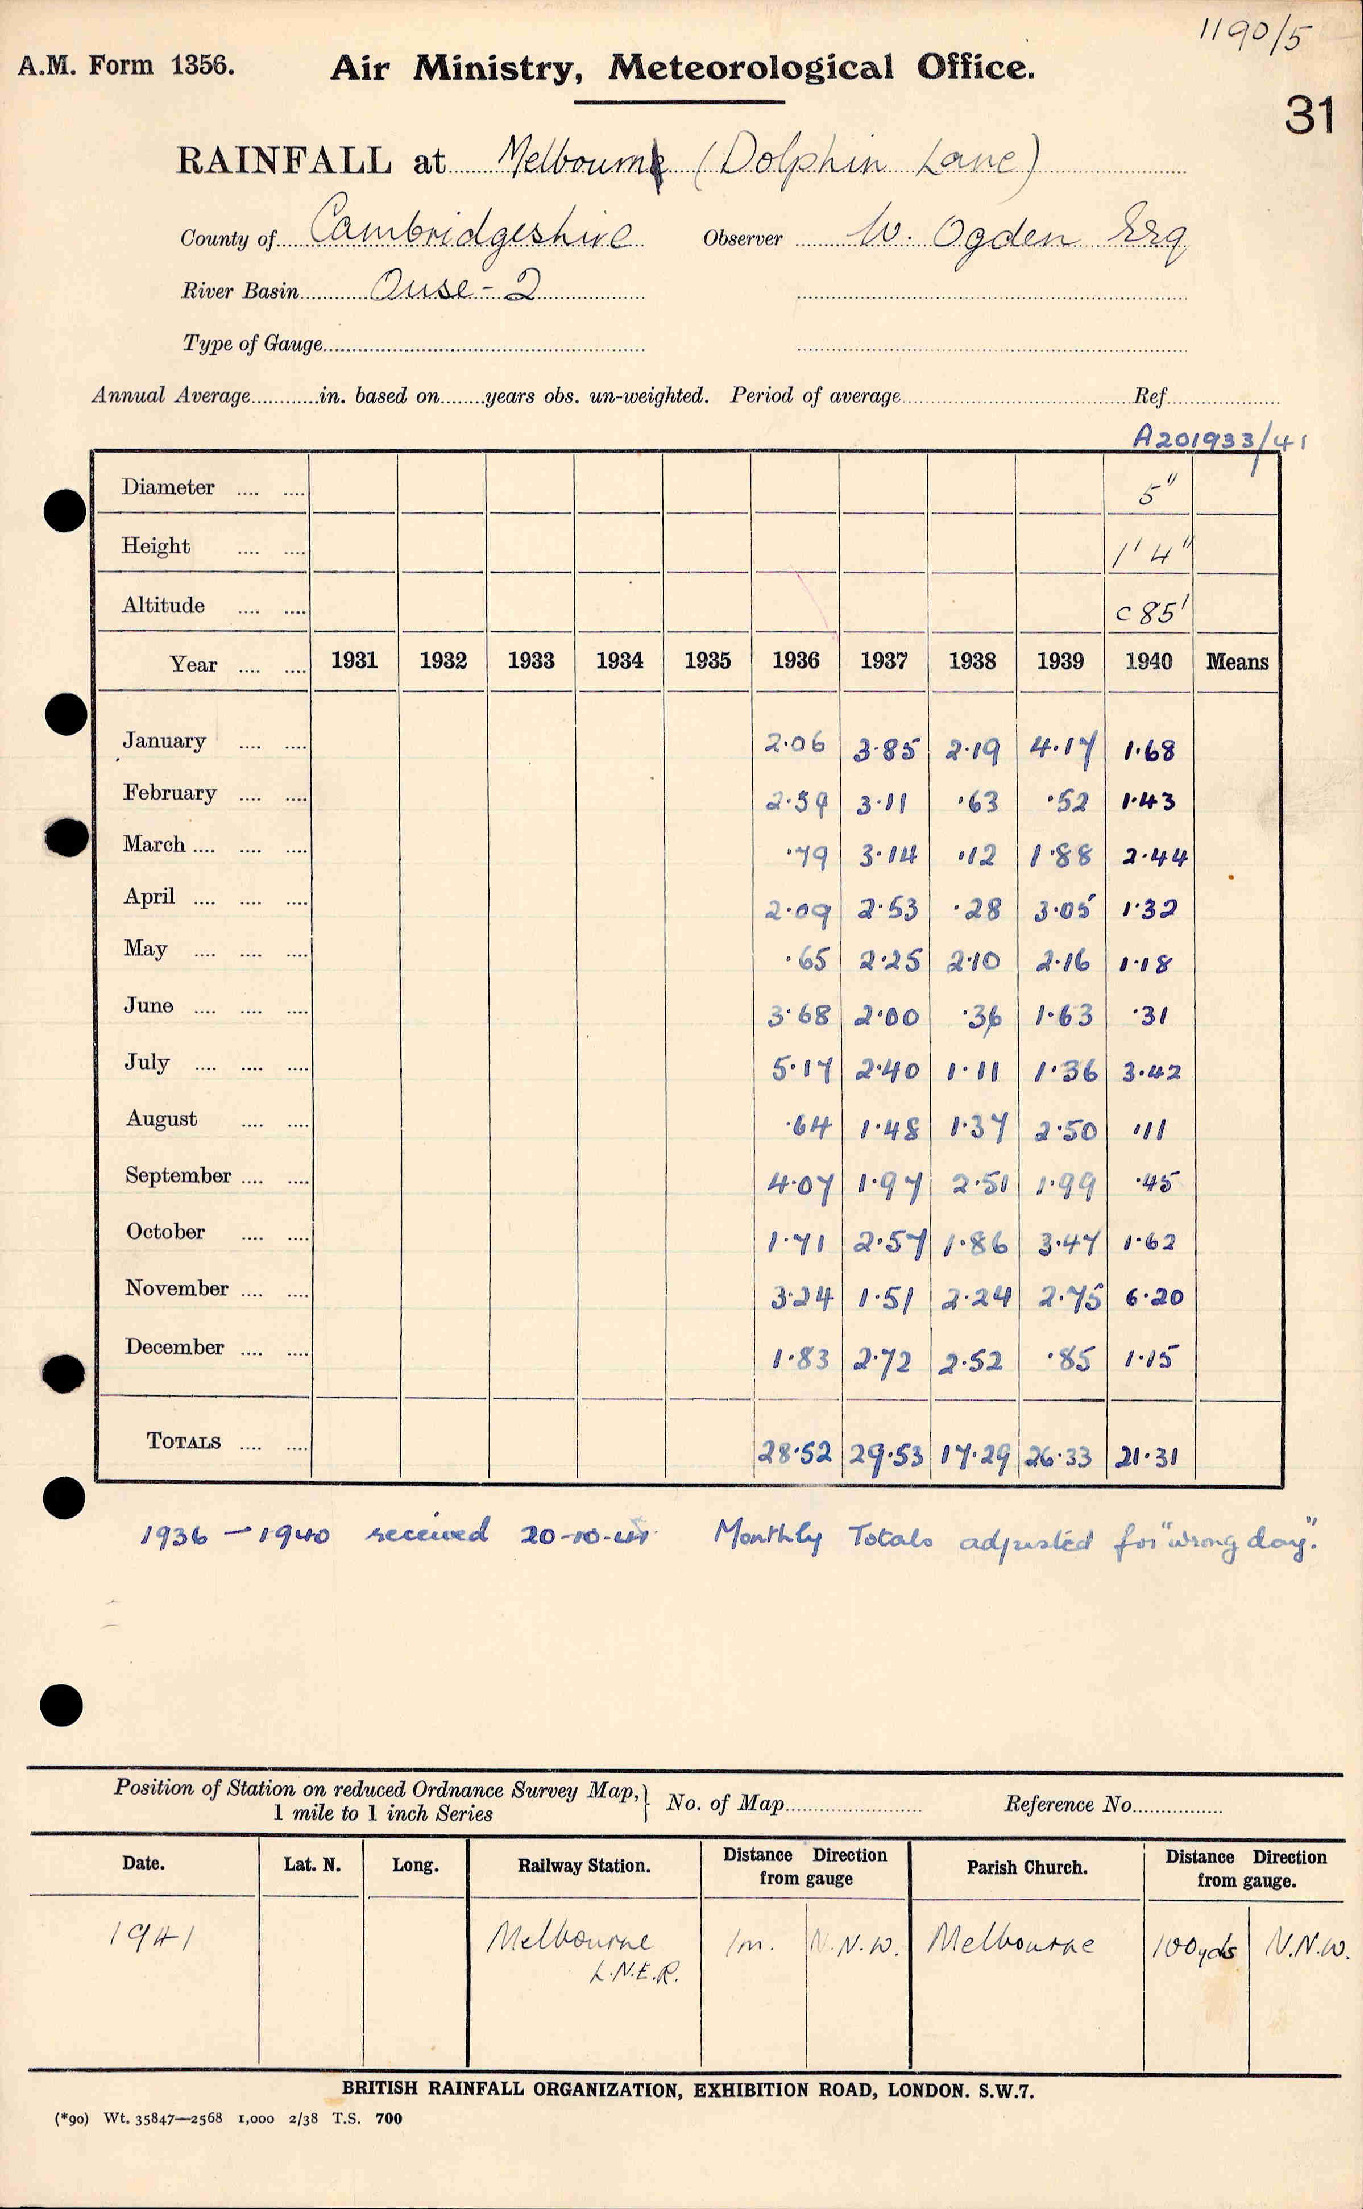 1190/5
A.M. Form 1356. Air Ministry, Meteorological Office.
31
RAINFALL at Melbourn (Dolphin Lane)
County of Cambridgeshire Observer W. Ogden Esq
River Basin Ouse-2
Type of Gauge
Annual Average in. based on years obs. un-weighted. Period of average Ref
A201933/41
Diameter 5"
Height 1' 4"
Altitude c 85'
Year 1931 1932 1933 1934 1935 1936 1937 1938 1939 1940 Means
January 2.06 3.85 2.19 4.17 1.68
February 2.59 3.11 .63 .52 1.43
March .79 3.14 .12 1.88 2.44
April 2.09 2.53 .28 3.05 1.32
May .65 2.25 2.10 2.16 1.18
June 3.68 2.00 .36 1.63 .31
July 5.17 2.40 1.11 1.36 3.42
August .64 1.48 1.37 2.50 .11
September 4.07 1.97 2.51 1.99 .45
October 1.71 2.57 1.86 3.47 1.62
November 3.24 1.51 2.24 2.75 6.20
December 1.83 2.72 2.52 .85 1.15
TOTALS 28.52 29.53 17.29 26.33 21.31
1936 - 1940 received 20-10-41 Monthly Totals adjusted for "wrong day".
Position of Station on reduced Ordnance Survey Map, 1 mile to 1 inch Series } No. of Map Reference No.
Date. Lat. N. Long. Railway Station. Distance Direction from gauge Parish Church. Distance Direction from gauge.
1941 Melbourne L.N.E.R. 1m. N.N.W. Melbourne 100yds N.N.W.
BRITISH RAINFALL ORGANIZATION, EXHIBITION ROAD, LONDON. S.W.7.
(*90) Wt. 35847—2568 1,000 2/38 T.S. 700